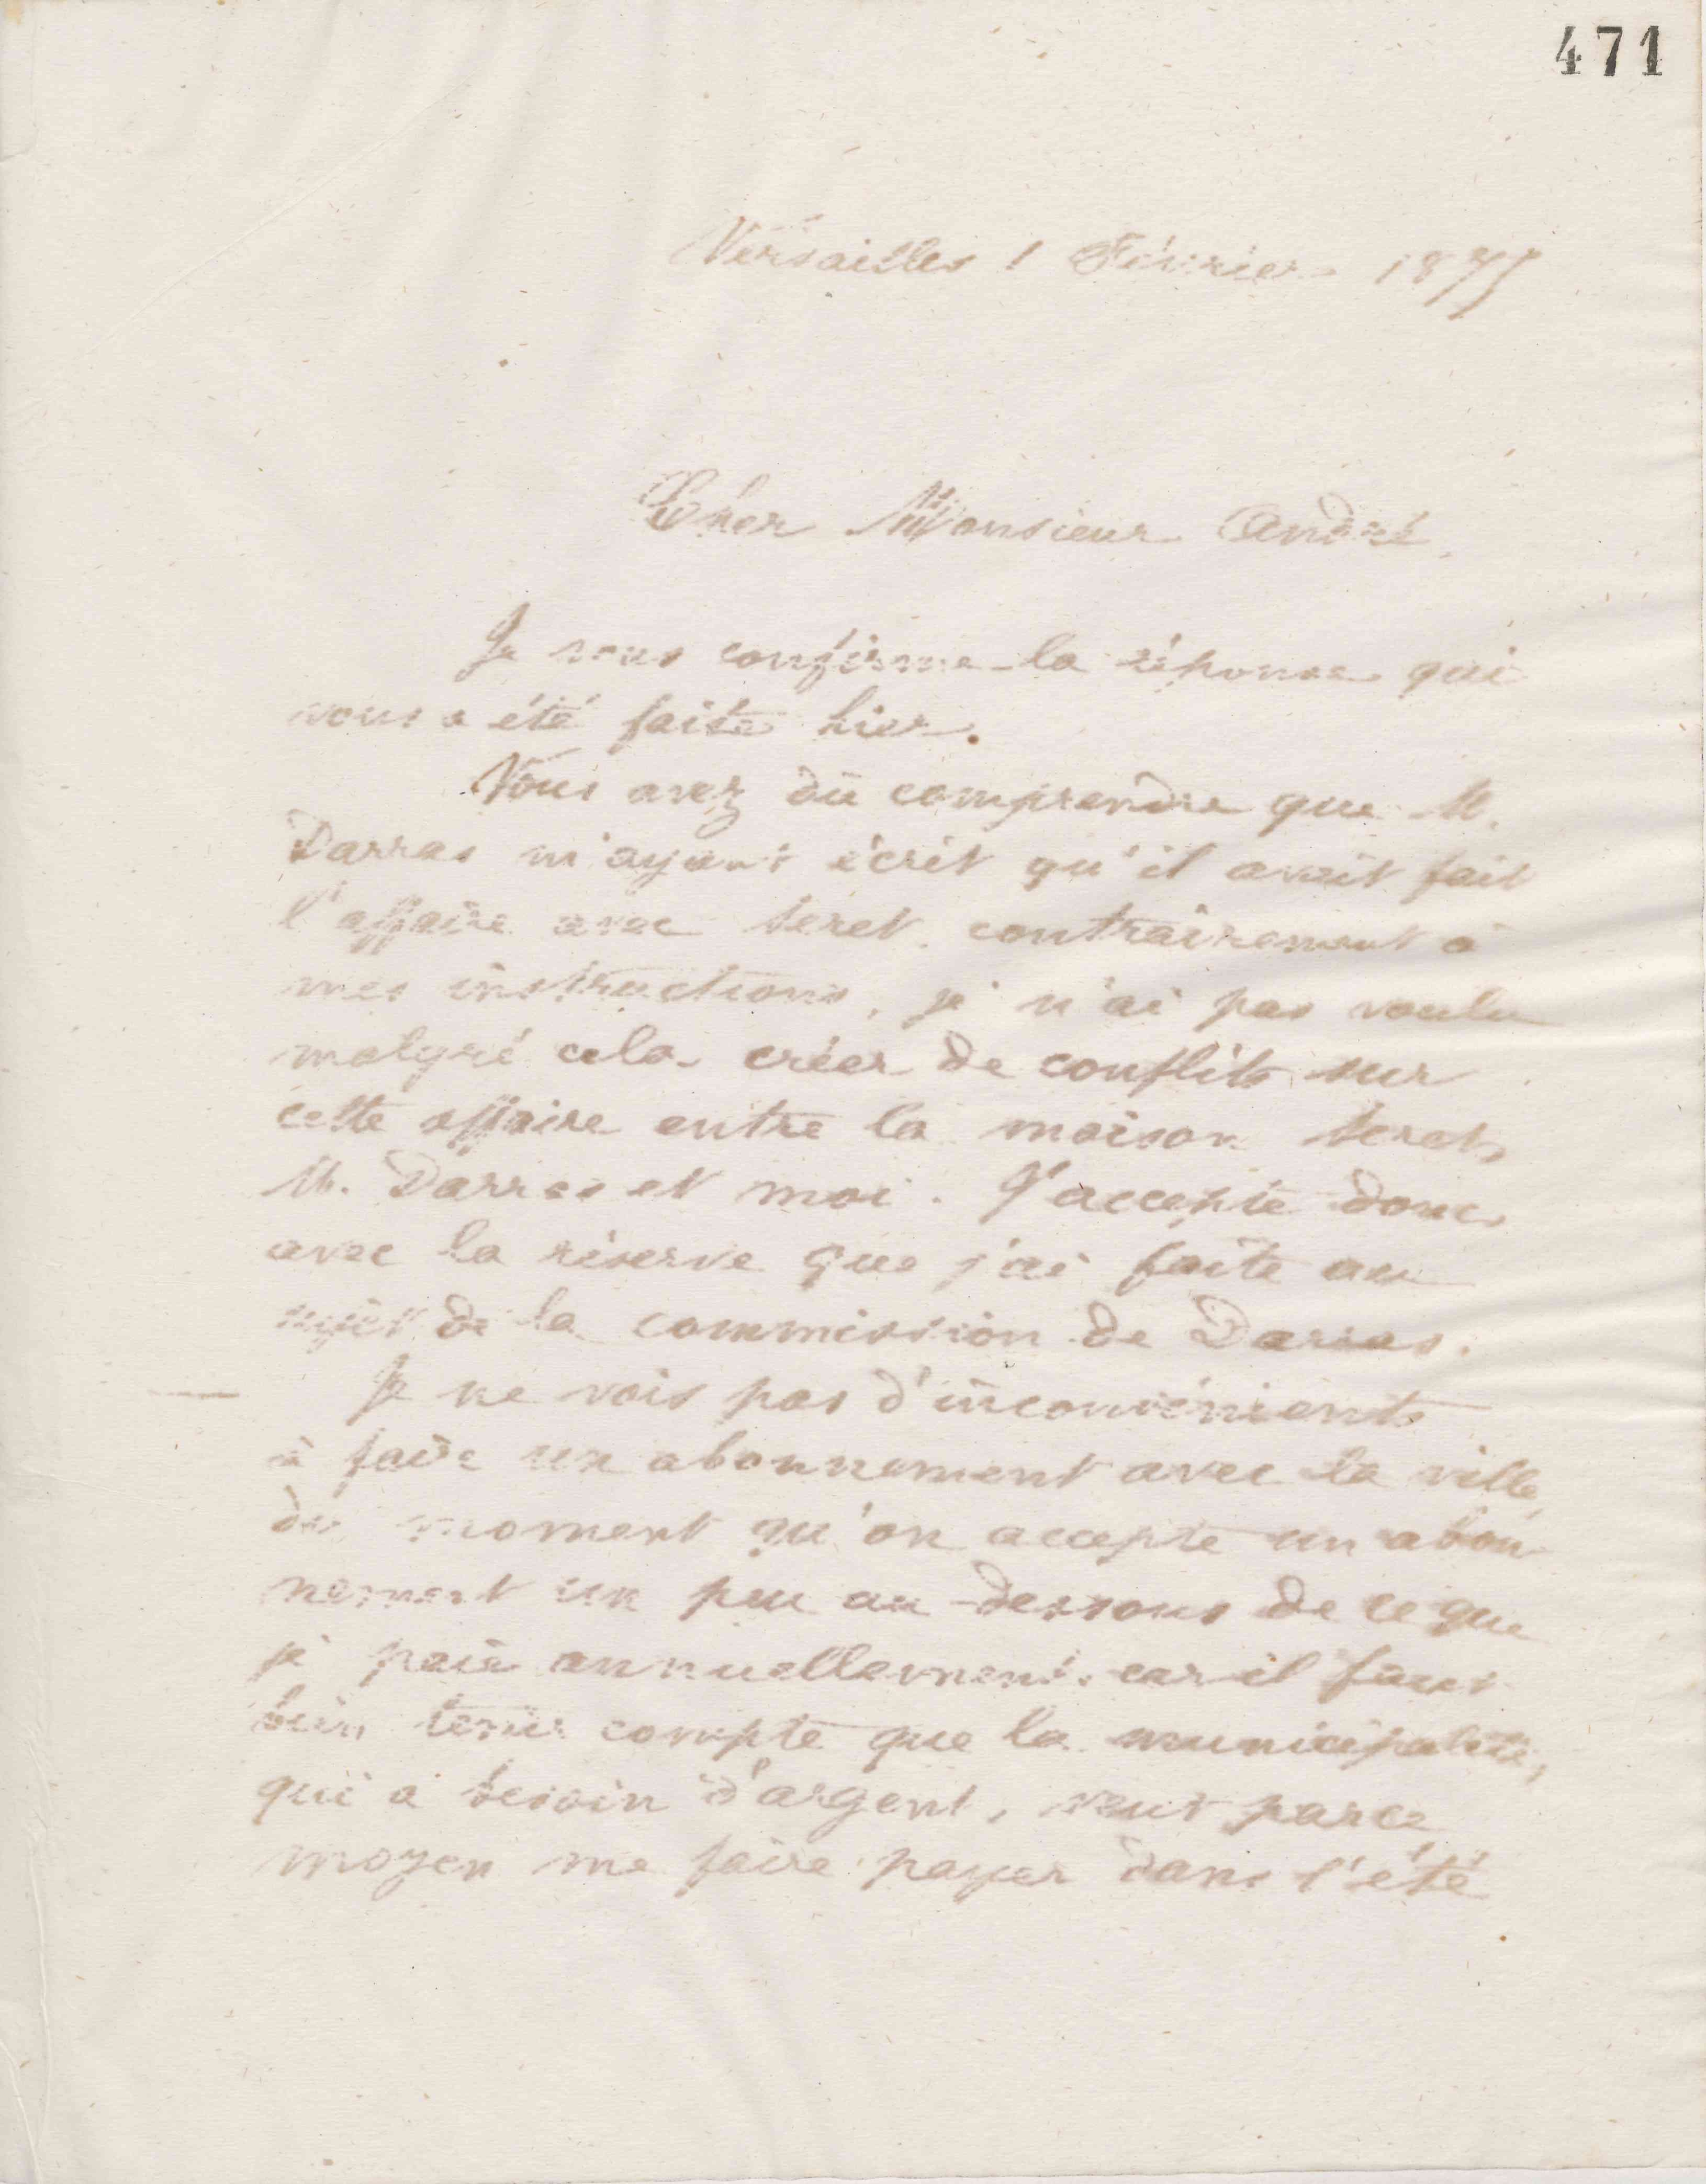 471
Versailles 1 Février 1875
Cher Monsieur André,
Je vous confirme la réponse qui
vous a été faite hier.
Vous avez dû comprendre que M.
Darras m'ayant écrit qu'il avait fait
l'affaire avec contrairement à
mes instructions, je n'ai pas voulu
malgré cela créer de conflits sur
cette affaire entre la maison
M. Darras et moi. J'accepte donc,
avec la réserve que j'ai faite au
sujet de la commission de Darras.
Je ne vois pas d'inconvénients
à faire un abonnement avec la ville,
du moment qu'on accepte un abon-
nement un peu au-dessous de ce que
je paie annuellement, car il faut
bien tenir compte que la municipalité,
qui a besoin d'argent, veut par ce
moyen me faire payer dans l'été